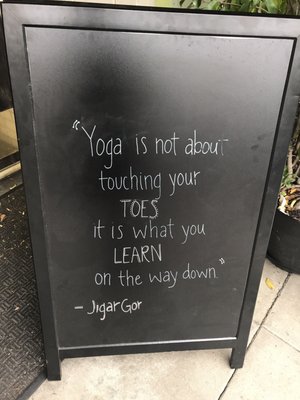 "Yoga is not about
touching your
TOES
it is what you
LEARN
on the way down."
- Jigar Gor